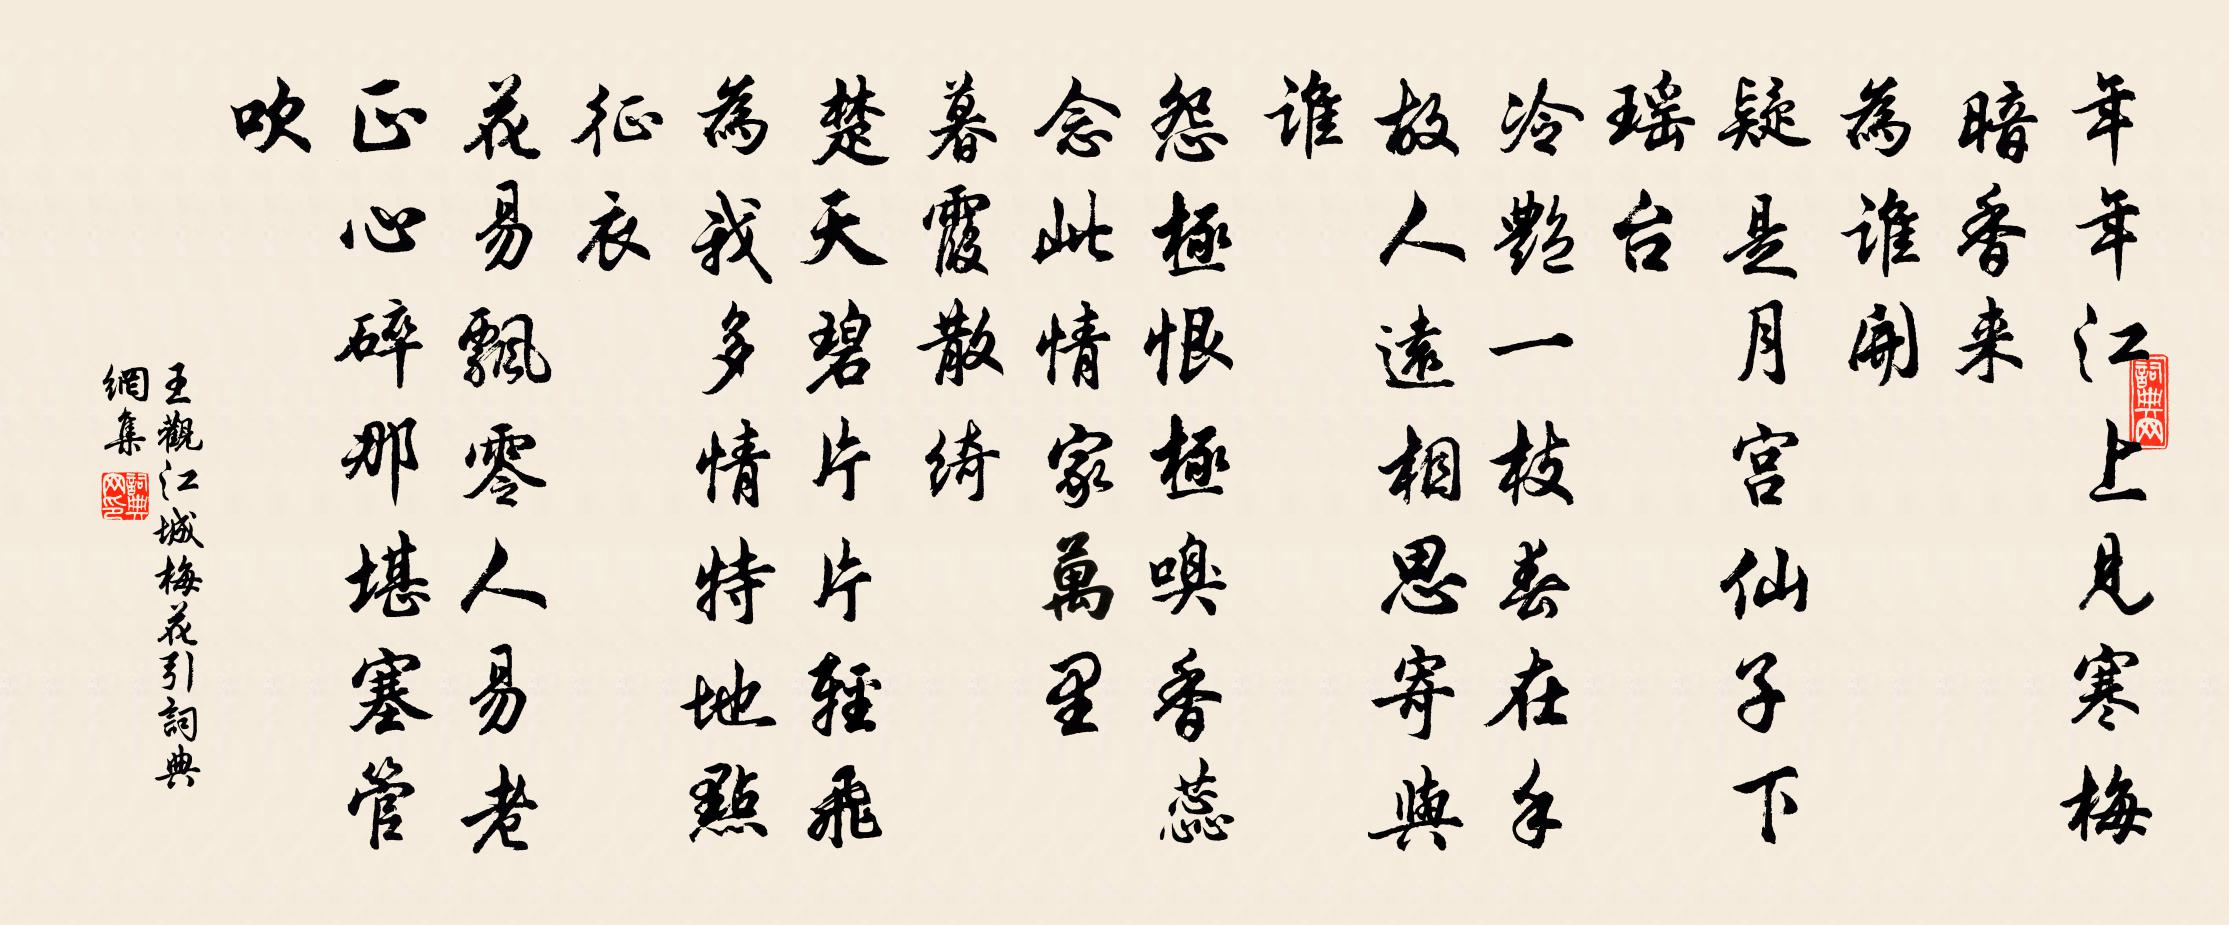 年年江上見寒梅
暗香来
為誰開
疑是月宫仙子下
瑶台
冷艶一枝春在手
故人遠相思寄與
誰
怨極恨極嗅香蕊
念此情家萬里
暮霞散綺
楚天碧片片輕飛
為我多情特地點
征衣
花易飄零人易老
正心碎那堪塞管
吹
王觀江城梅花引詞典
網集
詞典网
詞典网印